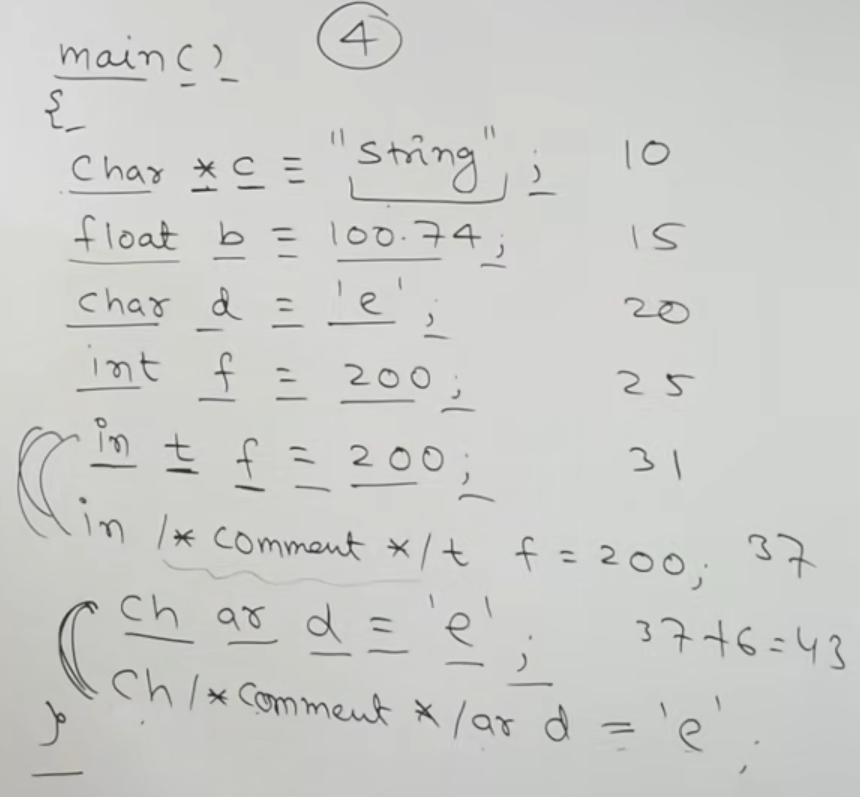 4
main()
{
char *c = "string"; 10
float b = 100.74; 15
char d = 'e'; 20
int f = 200; 25
in t f = 200; 31
in /* comment */t f = 200; 37
ch ar d = 'e'; 37+6=43
ch/*comment */ar d = 'e';
}